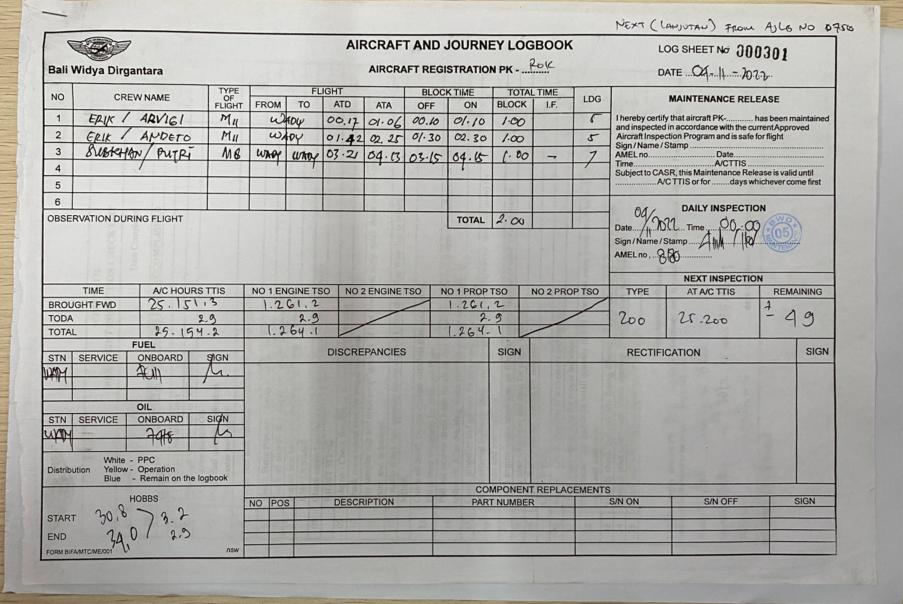 NEXT (LANJUTAN) FROM AJLB NO 0750
Bali Widya Dirgantara
AIRCRAFT AND JOURNEY LOGBOOK
AIRCRAFT REGISTRATION PK - ROK
LOG SHEET No 000301
DATE 04-11-2022
NO CREW NAME TYPE OF FLIGHT FLIGHT BLOCK TIME TOTAL TIME LDG
FROM TO ATD ATA OFF ON BLOCK I.F.
1 ERIK / ARVIGI WADY 00.17 01.06 00.10 01.10 1.00
2 ERIK / ANDETO WADY 01.42 02.25 01.30 02.30 1.00 5
3 PUTRI WADY WADY 03.21 04.13 03.15 04.15 1.00 - 7
4
5
6
OBSERVATION DURING FLIGHT
TOTAL 2.00
MAINTENANCE RELEASE
I hereby certify that aircraft PK-............ has been maintained
and inspected in accordance with the current Approved
Aircraft Inspection Program and is safe for flight
Sign / Name / Stamp
AMEL no. Date
Time A/C TTIS
Subject to CASR, this Maintenance Release is valid until
A/C TTIS or for days whichever come first
DAILY INSPECTION
Date 04/11/2022 Time 00.00
Sign / Name / Stamp
AMEL no. 880
BWD
05
NEXT INSPECTION
TYPE AT A/C TTIS REMAINING
200 25.200 49
TIME A/C HOURS TTIS NO 1 ENGINE TSO NO 2 ENGINE TSO NO 1 PROP TSO NO 2 PROP TSO
BROUGHT FWD 25.151,3 1.261,2 1.261,2
TODA 2.9 2.9 2.9
TOTAL 25.154.2 1.264.1 1.264.1
FUEL
STN SERVICE ONBOARD SIGN
WADY Full
OIL
STN SERVICE ONBOARD SIGN
WADY 7qts
Distribution White - PPC
Yellow - Operation
Blue - Remain on the logbook
DISCREPANCIES SIGN RECTIFICATION SIGN
HOBBS
START 30,8 3.2
END 34,0 2.9
FORM BIFA/MTC/ME/001 nsw
COMPONENT REPLACEMENTS
NO POS DESCRIPTION PART NUMBER S/N ON S/N OFF SIGN